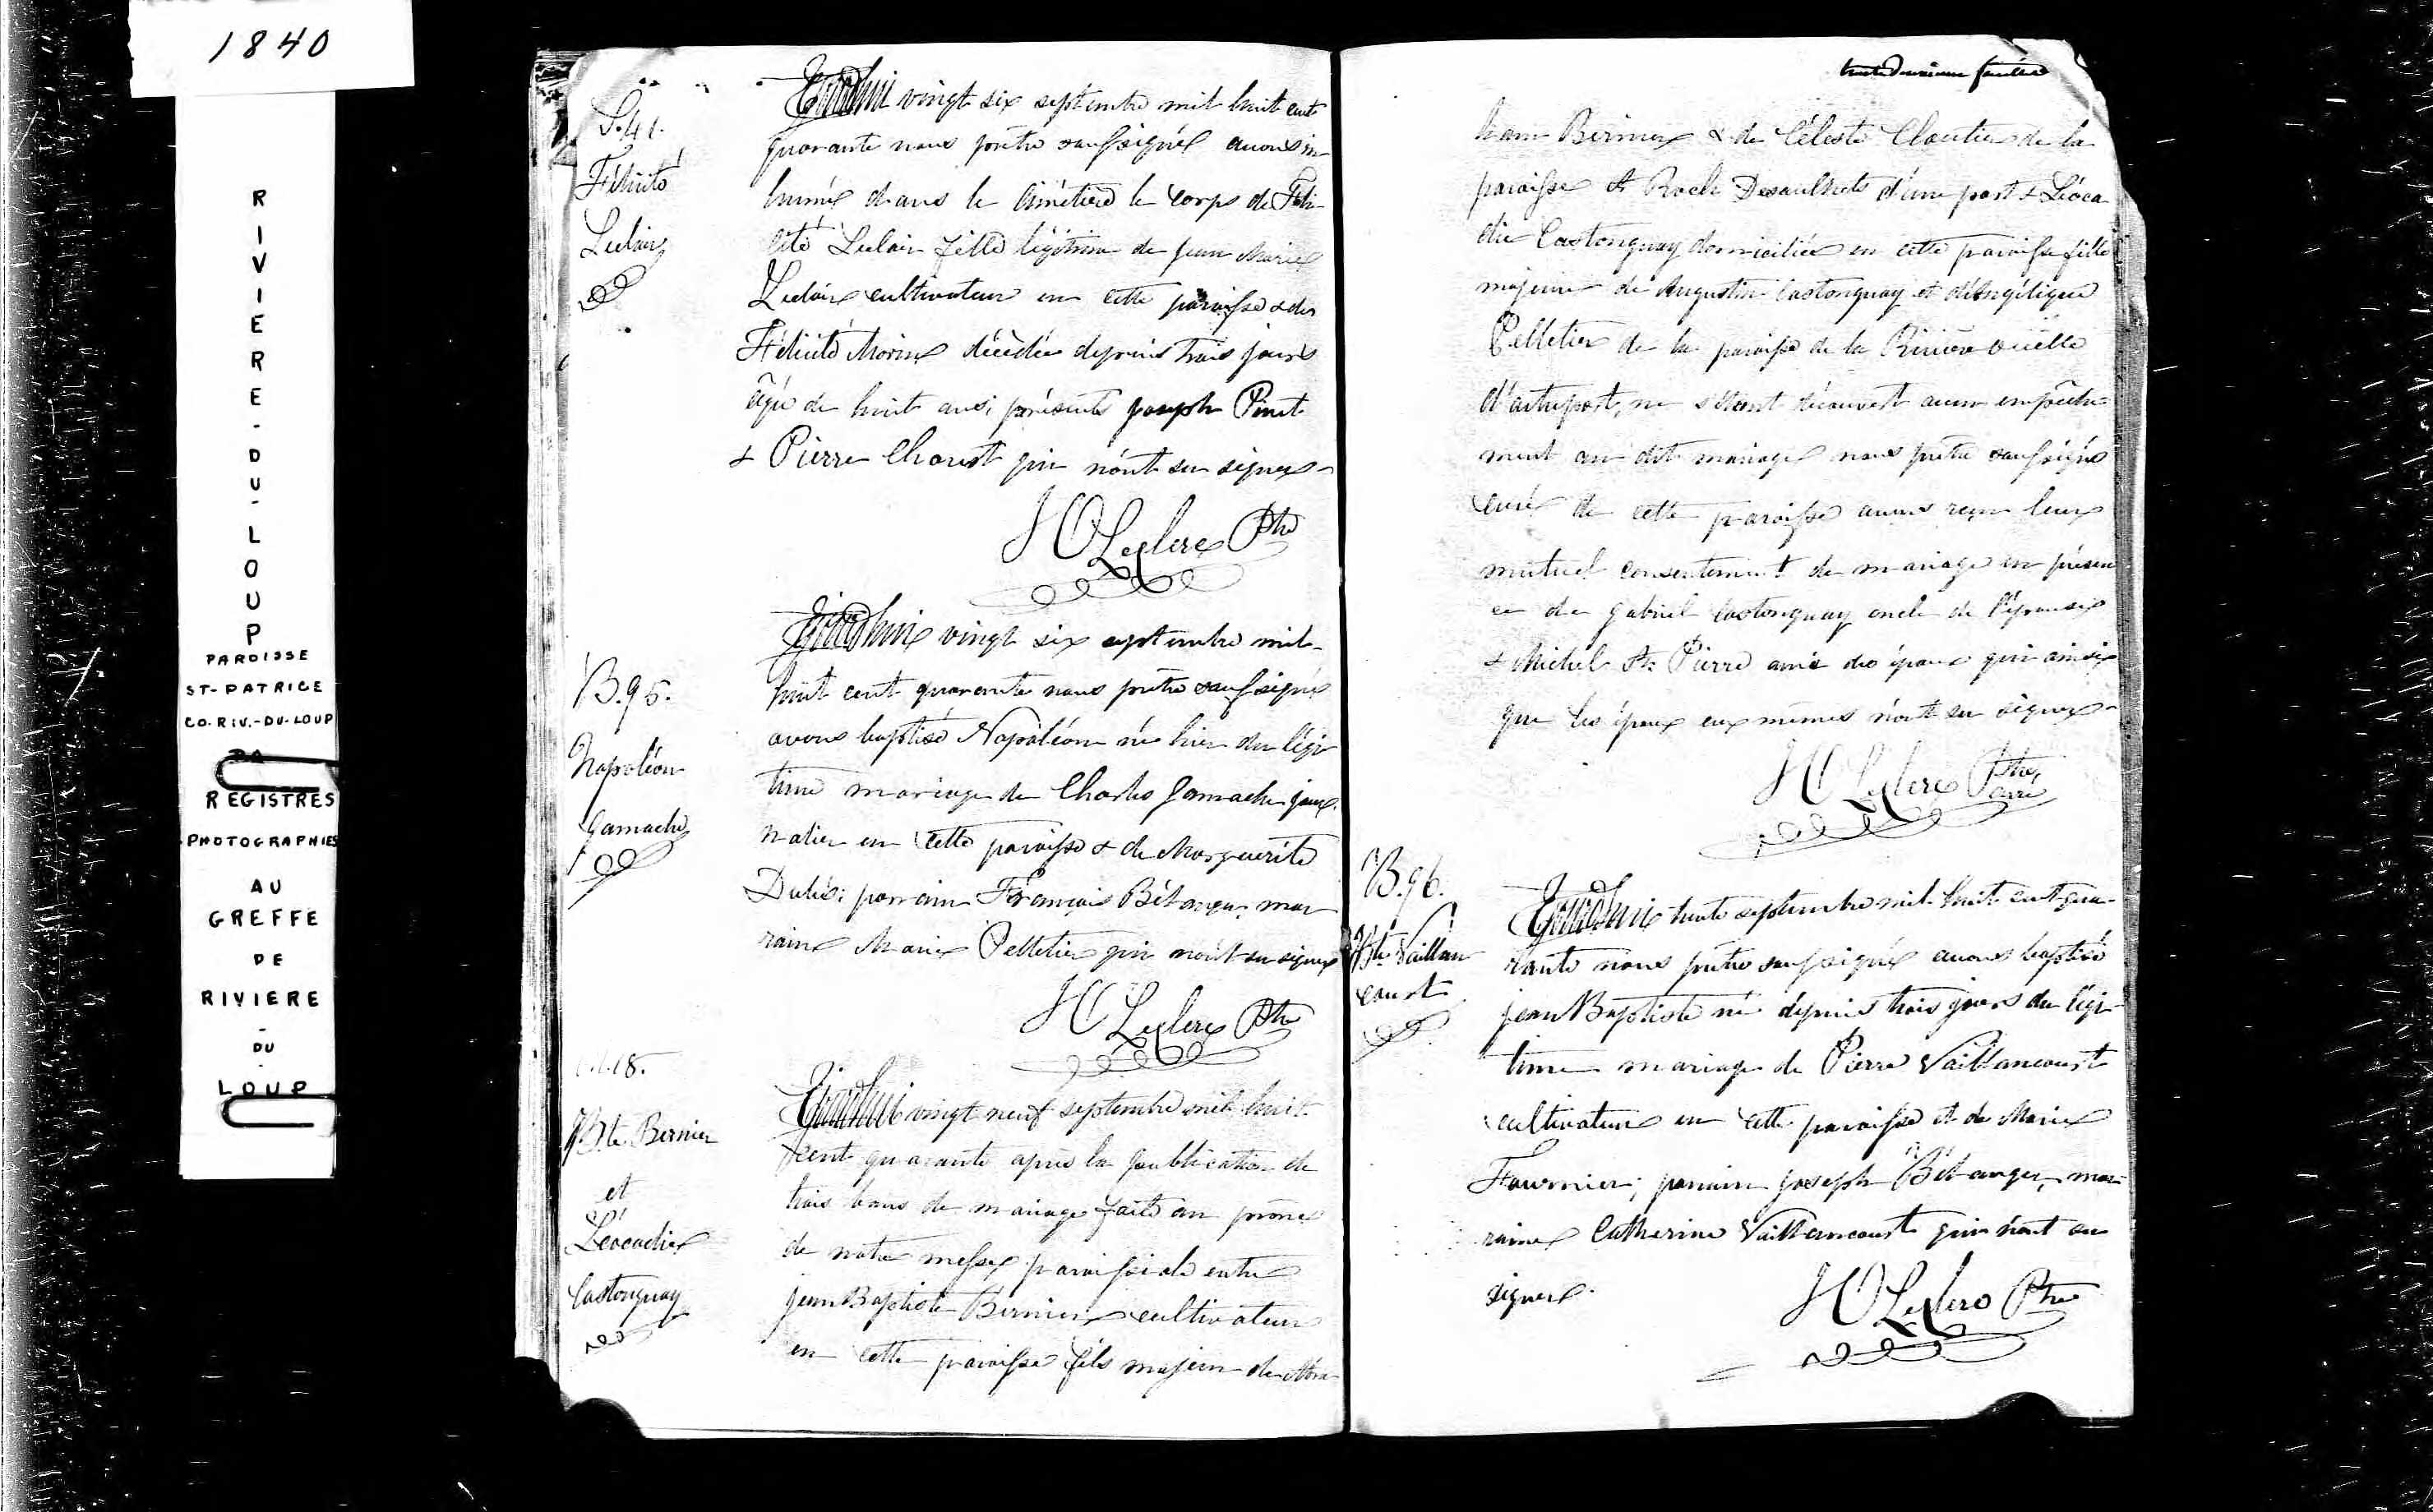 1840
RIVIERE-DU-LOUP
PAROISSE
ST-PATRICE
CO. RIV.-DU-LOUP
REGISTRES
PHOTOGRAPHIES
AU
GREFFE
DE
RIVIERE
-
DU
-
LOUP
S. 41.
Félicité
Leclair
Aujourdhui vingt six septembre mil huit cent
quarante nous prêtre soussigné avons in
humé dans le cimétiere le corps de Féli-
cité Leclair fille légitime de jean Marie
Leclair cultivateur en cette paroisse & de
Félicité Morin décèdée depuis trois jours
âgée de huit ans; présents joseph Pinet
& Pierre Chouest qui n'ont su signer-
Leclerc Ptre
B. 95.
Napoléon
Gamache
Aujourdhui vingt six septembre mil-
huit cent quarante nous prêtre soussigné
avons baptisé Napoléon né hier du légi-
time mariage de Charles Gamache jour-
nalier en cette paroisse & de Marguerite
Dubé; parrain François Bélanger, mar
raine Marie Pelletier qui n'ont su signer
Leclerc Ptre
18.
J Bte Bernier
et
Léocadie
Castonguay
Aujourdhui vingt neuf septembre mil huit
cent quarante après la publication de
trois bans de mariage faite au prône
de notre messe paroissiale entre
jean Baptiste Bernier cultivateur
en cette paroisse fils majeur de Abra-
trente deuxieme feuillet
ham Bernier & de Céleste Cloutier de la
paroisse St Roch Desaulnets d'une part & Léoca
die Castonguay domiciliée en cette paroisse fille
majeure de Augustin Castonguay et d'Angélique
Pelletier de la paroisse de la Rivière Ouelle
d'autre part, ne s'étant découvert aucun empêche-
ment au dit mariage nous prêtre soussigné
curé de cette paroisse avons reçu leur
mutuel consentement de mariage en présen
ce de Gabriel Castonguay oncle de l'épouse
& Michel St Pierre ami des époux qui ainsi
que les époux eux mêmes n'ont su signer-
Leclerc Ptre
curé
B. 96.
J Bte Vaillan
court
Aujourdhui trente septembre mil huit cent qua-
rante nous prêtre soussigné avons baptisé
jean Baptiste né depuis trois jours du légi-
time mariage de Pierre Vaillancourt
cultivateur en cette paroisse et de Marie
Fournier; parrain joseph Bélanger, mar-
raine Catherine Vaillancourt qui n'ont su
signer.
Leclerc Ptre